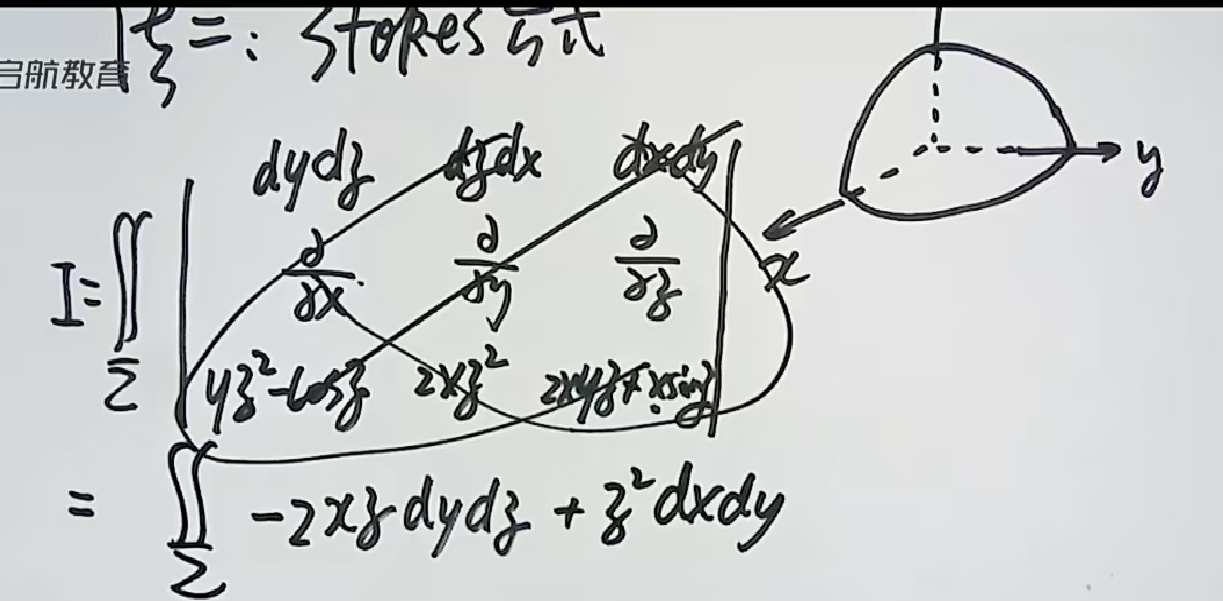 =: Stokes 公式
启航教育
dydz dzdx dxdy
I = ∬_Σ | ∂/∂x ∂/∂y ∂/∂z |
yz²-cosz 2xz² 2xyz+xsinz
= ∬_Σ -2xz dydz + z² dxdy
y
x